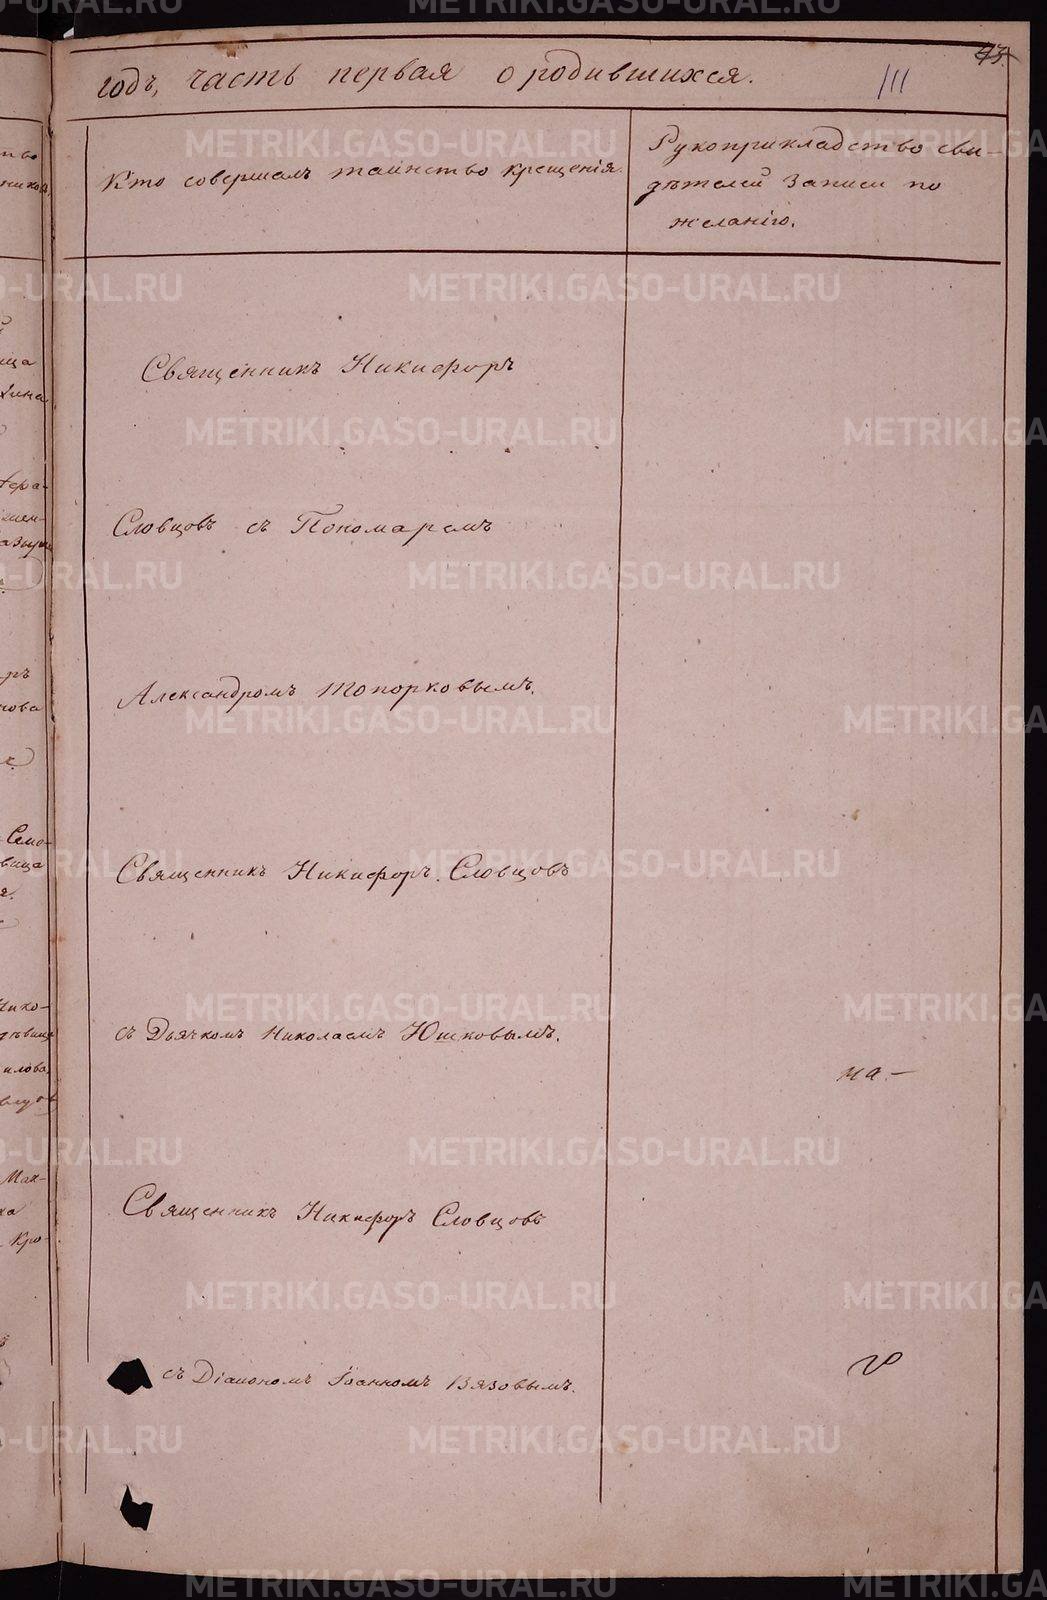 43.
годъ, часть первая о родившихся. 111
Кто совершалъ таинство крещенія.
Рукоприкладство сви-
дѣтелей записи по
желанію.
Священникъ Никифоръ
Словцовъ съ Пономаремъ
Александромъ Топорковымъ.
Священникъ Никифоръ Словцовъ
съ Дьячкомъ Николаемъ Юшковымъ.
на. —
Священникъ Никифоръ Словцовъ
съ Діакономъ Іоанномъ Вязовымъ.
METRIKI.GASO-URAL.RU